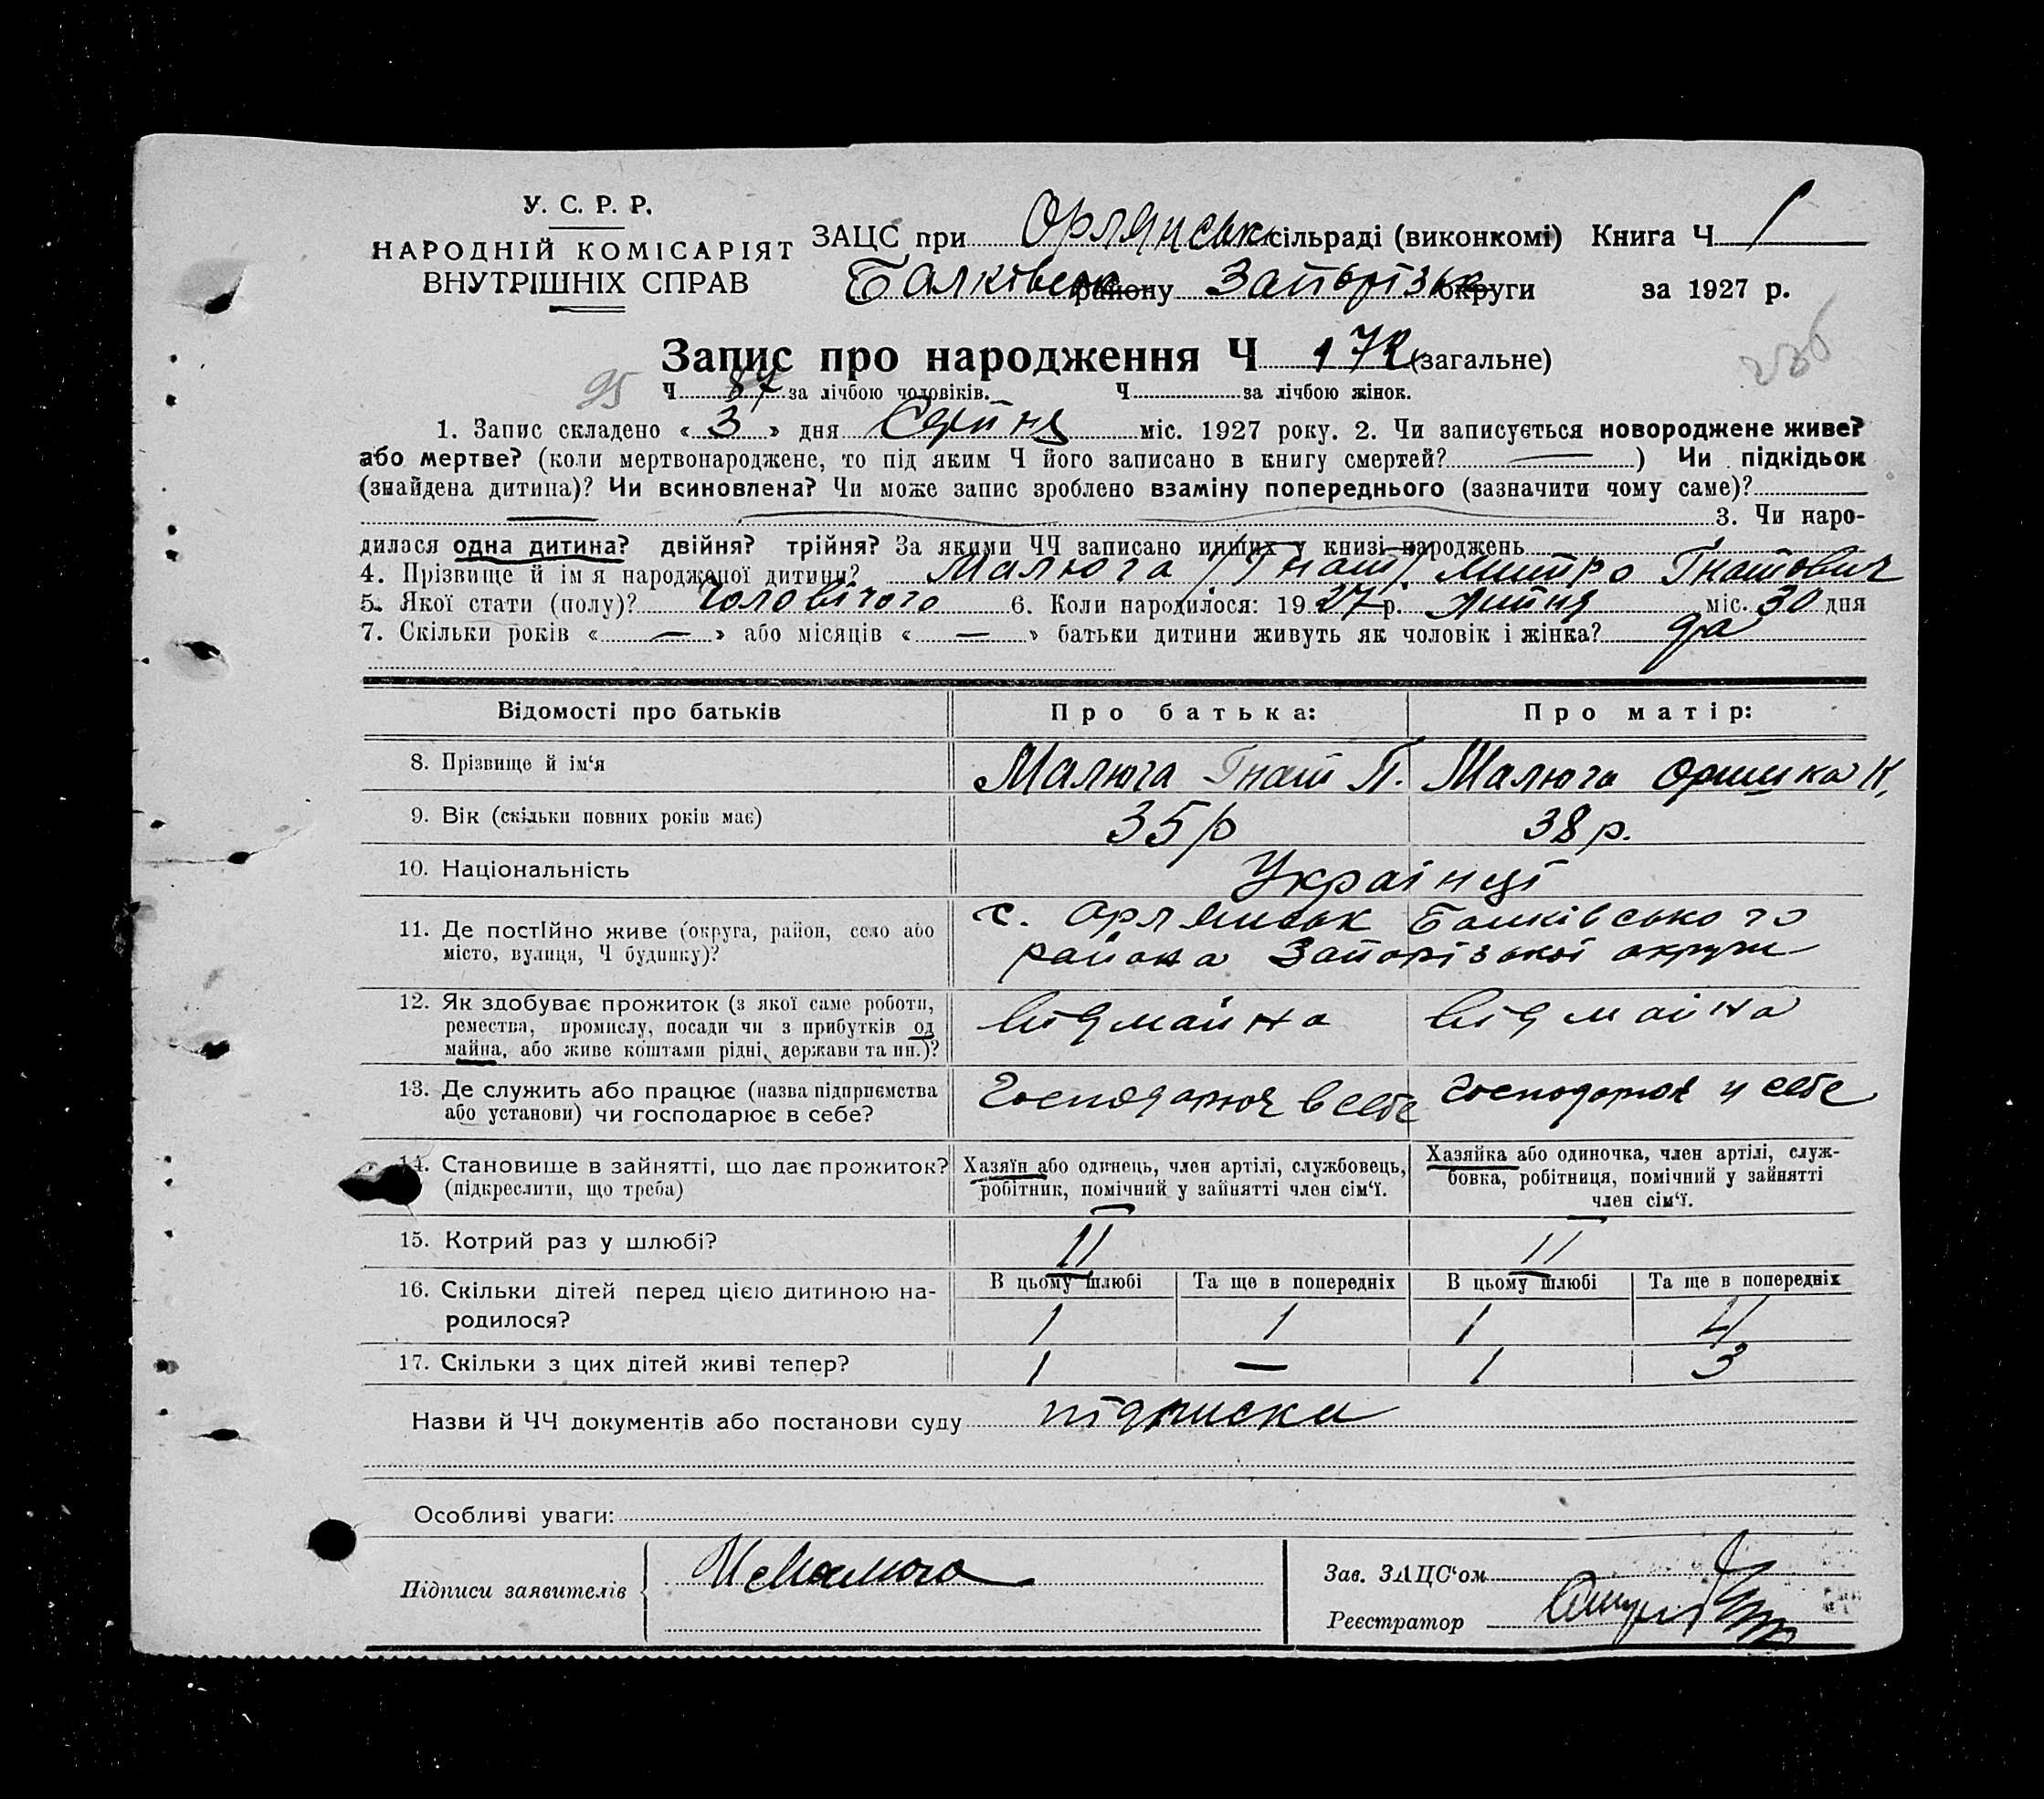 У. С. Р. Р.
НАРОДНІЙ КОМІСАРІЯТ
ВНУТРІШНІХ СПРАВ
ЗАЦС при Орлянськ сільраді (виконкомі) Книга Ч 1
Балківськ району Запорізьк округи за 1927 р.
Запис про народження Ч 172 (загальне)
95 Ч 87 за лічбою чоловіків. Ч за лічбою жінок.
1. Запис складено « 3 » дня Серпня міс. 1927 року. 2. Чи записується новороджене живе?
або мертве? (коли мертвонароджене, то під яким Ч його записано в книгу смертей? — ) Чи підкідьок
(знайдена дитина)? Чи всиновлена? Чи може запис зроблено взаміну попереднього (зазначити чому саме)?
3. Чи наро-
дилася одна дитина? двійня? трійня? За якими ЧЧ записано инших у книзі народжень
4. Прізвище й ім я народженої дитини? Малюга /Гнат/ Митро Гнатович
5. Якої стати (полу)? Чоловічого 6. Коли народилося: 1927 р. Липня міс. 30 дня
7. Скільки років « — » або місяців « — » батьки дитини живуть як чоловік і жінка? да
Відомості про батьків Про батька: Про матір:
8. Прізвище й ім‘я Малюга Гнат П. Малюга Оришка К.
9. Вік (скільки повних років має) 35 р 38 р.
10. Національність Українці
11. Де постійно живе (округа, район, село або
місто, вулиця, Ч будинку)?
с. Орлянськ Балківського
района Запорізької округи
12. Як здобуває прожиток (з якої саме роботи,
ремества, промислу, посади чи з прибутків од
майна, або живе коштами рідні, держави та ин.)?
від майна від майна
13. Де служить або працює (назва підприємства
або установи) чи господарює в себе?
Господарює в себе господарює у себе
14. Становище в зайнятті, що дає прожиток?
(підкреслити, що треба)
Хазяїн або одинець, член артілі, службовець,
робітник, помічний у зайнятті член сім‘ї.
Хазяйка або одиночка, член артілі, служ-
бовка, робітниця, помічний у зайнятті
член сім‘ї.
15. Котрий раз у шлюбі? II II
16. Скільки дітей перед цією дитиною на-
родилося?
В цьому шлюбі Та ще в попередніх В цьому шлюбі Та ще в попередніх
1 1 1 4
17. Скільки з цих дітей живі тепер? 1 — 1 3
Назви й ЧЧ документів або постанови суду підписка
Особливі уваги:
Підписи заявителів Малюга
Зав. ЗАЦС‘ом
Реєстратор